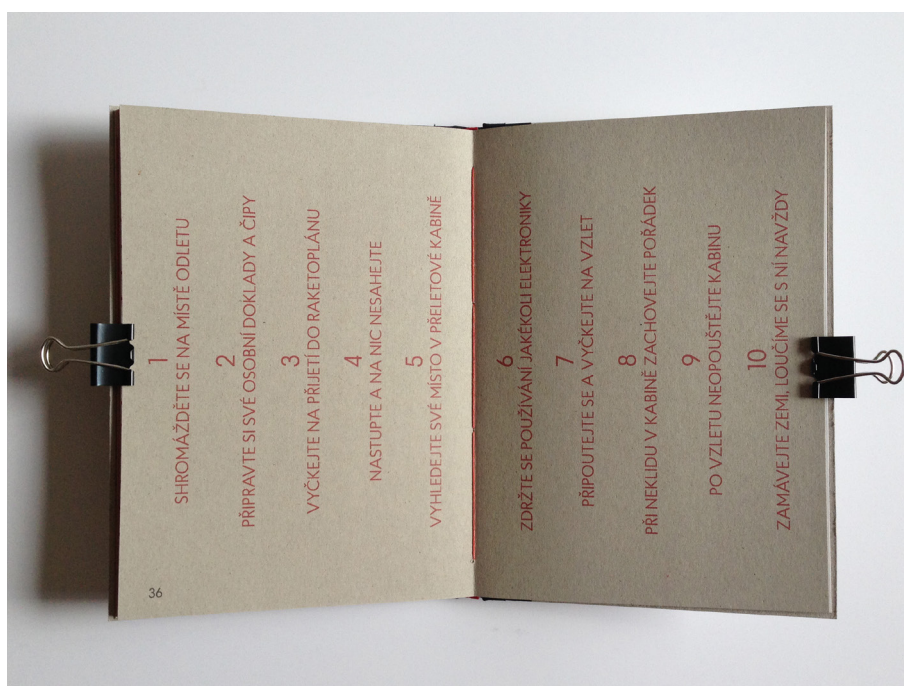 1
SHROMÁŽDĚTE SE NA MÍSTĚ ODLETU
2
PŘIPRAVTE SI SVÉ OSOBNÍ DOKLADY A ČIPY
3
VYČKEJTE NA PŘIJETÍ DO RAKETOPLÁNU
4
NASTUPTE A NA NIC NESAHEJTE
5
VYHLEDEJTE SVÉ MÍSTO V PŘELETOVÉ KABINĚ
36
6
ZDRŽTE SE POUŽÍVÁNÍ JAKÉKOLI ELEKTRONIKY
7
PŘIPOUTEJTE SE A VYČKEJTE NA VZLET
8
PŘI NEKLIDU V KABINĚ ZACHOVEJTE POŘÁDEK
9
PO VZLETU NEOPOUŠTĚJTE KABINU
10
ZAMÁVEJTE ZEMI, LOUČÍME SE S NÍ NAVŽDY